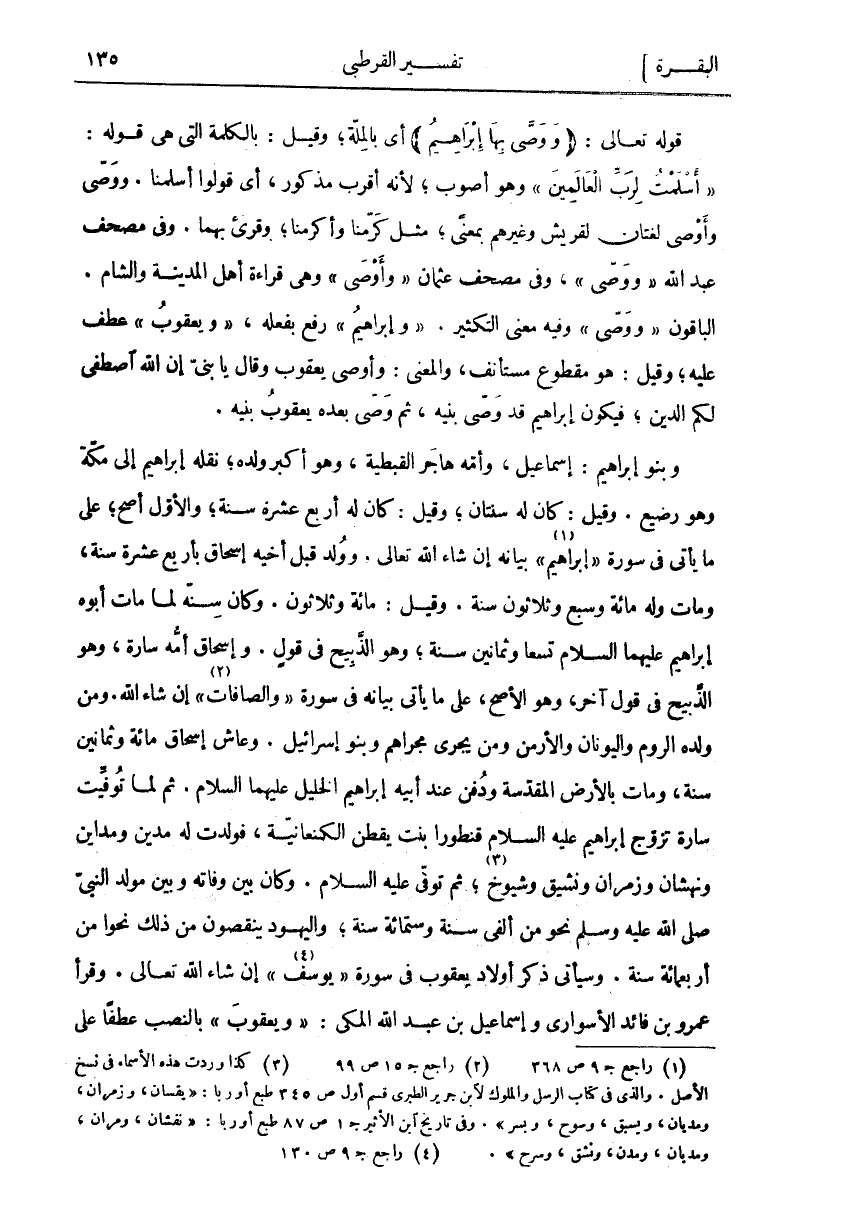 البقرة] تفسير القرطبى ١٣٥
قوله تعالى : ﴿ وَوَصَّى بِهَا إِبْرَاهِيمُ ﴾ أى بالملّة؛ وقيل : بالكلمة التى هى قوله :
« أَسْلَمْتُ لِرَبِّ الْعَالَمِينَ » وهو أصوب ؛ لأنه أقرب مذكور ، أى قولوا أسلمنا . ووَصّى
وأَوْصى لغتان لقريش وغيرهم بمعنًى ؛ مثل كَرّمنا وأكرمنا؛ وقرئ بهما . وفى مصحف
عبد الله « ووَصّى » ، وفى مصحف عثمان « وأَوْصَى » وهى قراءة أهل المدينة والشام .
الباقون « ووَصّى » وفيه معنى التكثير . « و إبراهيمُ » رفع بفعله ، « و يعقوبُ » عطف
عليه؛ وقيل : هو مقطوع مستأنف، والمعنى : وأوصى يعقوب وقال يا بنىّ إن الله ٱصطفى
لكم الدين ؛ فيكون إبراهيم قد وَصّى بنيه ، ثم وَصّى بعده يعقوبُ بنيه .
و بنو إبراهيم : إسماعيل ، وأمّه هاجَر القبطية ، وهو أكبر ولده؛ نقله إبراهيم إلى مكّة
وهو رضيع . وقيل : كان له سنتان ؛ وقيل : كان له أربع عشرة سنة؛ والأوّل أصح؛ على
ما يأتى فى سورة « إبراهيم » (١) بيانه إن شاء الله تعالى . ووُلد قبل أخيه إسحاق بأربع عشرة سنة،
ومات وله مائة وسبع وثلاثون سنة . وقيل : مائة وثلاثون . وكان سِنّه لما مات أبوه
إبراهيم عليهما السلام تسعا وثمانين سنة ؛ وهو الذَّبِيح فى قولٍ . و إسحاق أمُّه سارة ، وهو
الذَّبيح فى قول آخر، وهو الأصح، على ما يأتى بيانه فى سورة « والصافات » (٢) إن شاء الله. ومن
ولده الروم واليونان والأرمن ومن يجرى مجراهم و بنو إسرائيل . وعاش إسحاق مائة وثمانين
سنة ، ومات بالأرض المقدّسة ودُفن عند أبيه إبراهيم الخليل عليهما السلام . ثم لما تُوفّيت
سارة تزوّج إبراهيم عليه السلام قنطورا بنت يقطن الكنعانيّة ، فولدت له مدين ومداين
ونهشان وزمران ونشيق وشيوخ (٣) ؛ ثم توفّى عليه السلام . وكان بين وفاته و بين مولد النبىّ
صلى الله عليه وسلم نحو من ألفى سنة وستمائة سنة ؛ واليهود ينقصون من ذلك نحوا من
أربعمائة سنة . وسيأتى ذكر أولاد يعقوب فى سورة « يوسف » (٤) إن شاء الله تعالى . وقرأ
عمرو بن فائد الأسوارى و إسماعيل بن عبد الله المكى : « ويعقوبَ » بالنصب عطفًا على
(١) راجع جـ ٩ ص ٣٦٨ (٢) راجع جـ ١٥ ص ٩٩ (٣) كذا وردت هذه الأسماء فى نسخ
الأصل . والذى فى كتاب الرسل والملوك لابن جرير الطبرى قسم أول ص ٣٤٥ طبع أوربا : « يقسان ، وزمران ،
ومديان ، ويسبق ، وسوح ، وبسر » . وفى تاريخ ٱبن الأثير جـ ١ ص ٨٧ طبع أوربا : « نفشان ، ومران ،
ومديان ، ومدن ، ونشق ، وسرح » . (٤) راجع جـ ٩ ص ١٣٠